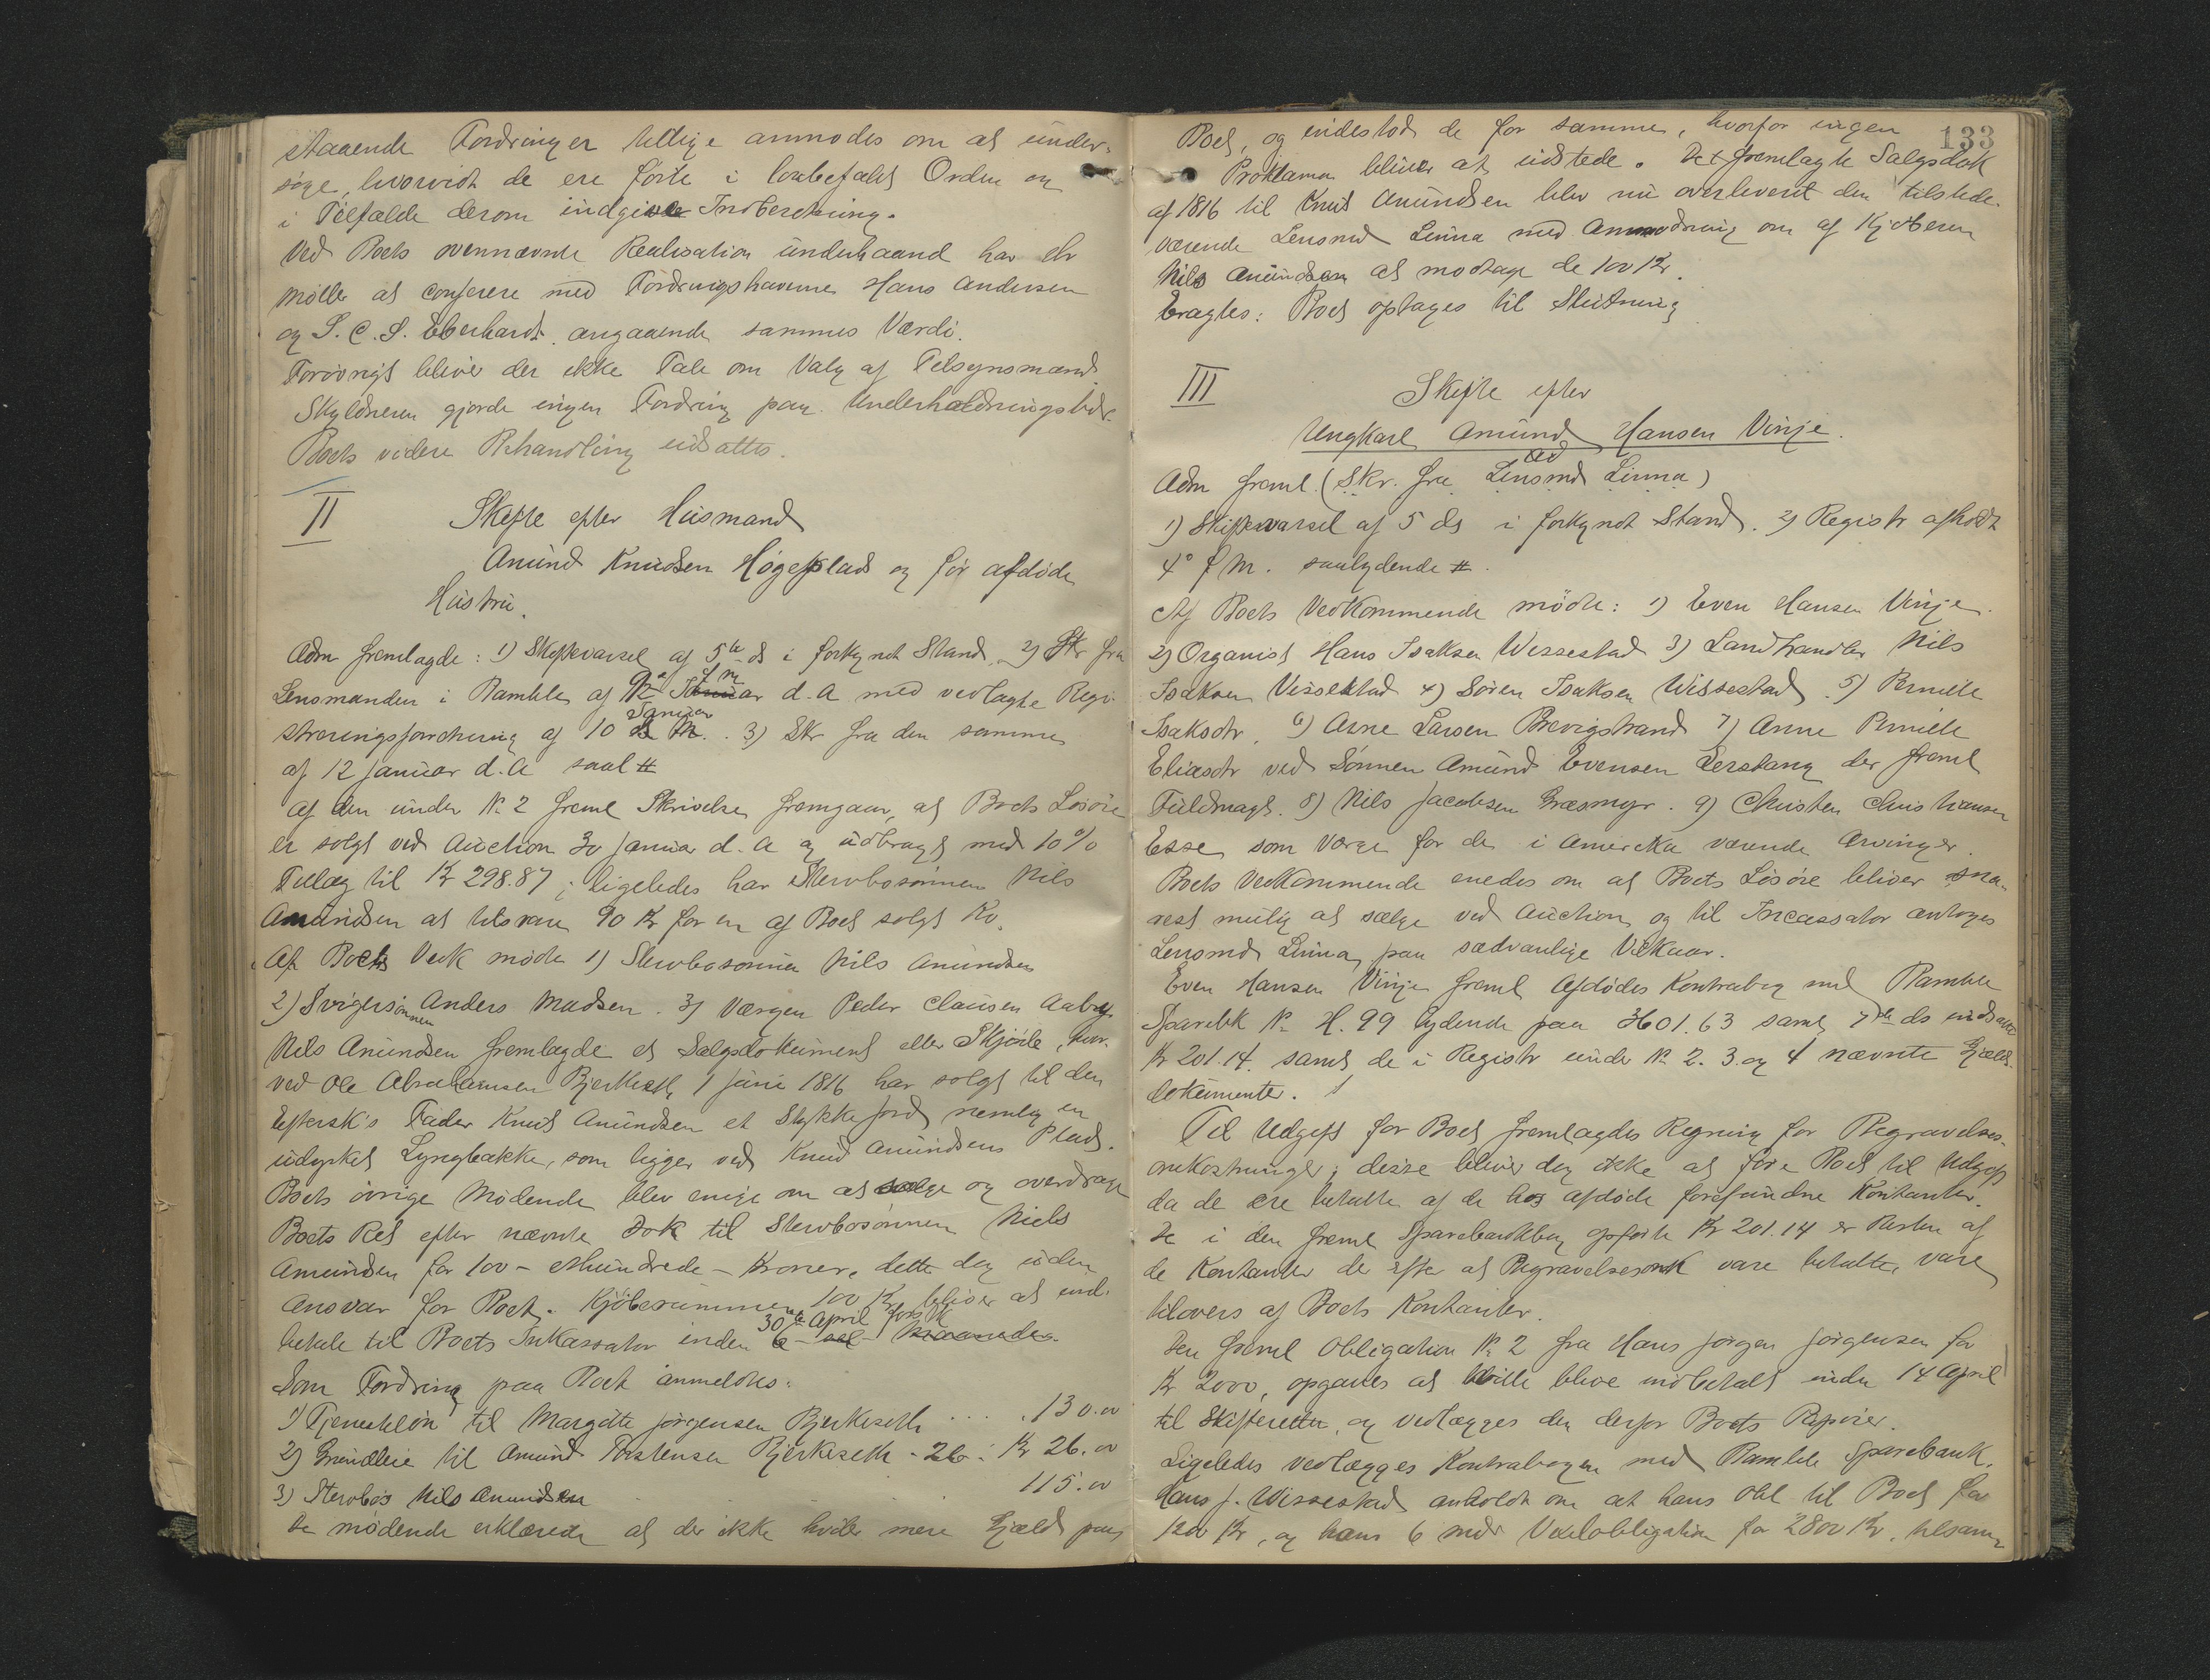 staaende Fordringer tillige anmodes om at under-
søge, hvorvidt de ere førte i lovbefalet Orden og
i Tilfælde derom indgive Indberetning.
Ved Boets ovennævnte Realisation underhaand har
Møller at conferere med Fordringshaverne Hans Andersen
og S. C. S. Eberhardt angaaende sammes Værdi.
Forøvrigt bliver der ikke Tale om Valg af Tilsynsmænd
Skyldneren gjorde ingen Fordring paa Underholdningsbidr.
Boets videre Behandling udsattes.
II
Skifte efter Husmand
Amund Knudsen Høgeplads og før afdøde
Hustru.
Adm fremlagde: 1) Skiftevarsel af 5te ds i forkyndt Stand, 2) Skr fra
Lensmanden i Bamble af f M d. A med vedlagte Regi-
streringsforretning af 10 Januar. 3) Skr fra den samme
af 12 Januar d. A saal #
Af den under N. 2 freml Skrivelse fremgaar, at Boets Løsøre
er solgt ved Auction 30 Januar d. A og udbragt med 10%
Tillæg til Kr 298.87; ligeledes har Stervbosønnen Nils
Amundsen at tilsvare 90 Kr for en af Boet solgt Ko.
Af Boets Vedk mødte 1) Stervbosønnen Nils Amundsen
2) Svigersønnen Anders Madsen. 3) Værgen Peder Clausen Aaby.
Nils Amundsen fremlagde et Salgsdokument eller Skjøde, hvor-
ved Ole Abrahamsen Bjerkeseth 1 Juni 1816 har solgt til den
Eftersk's Fader Knud Amundsen et Stykke Jord nemlig en
udyrket Lyngbakke, som ligger ved Knud Amundsens Plads.
Boets øvrige Mødende blev enige om at sælge og overdrage
Boets Ret efter nævnte Dok til Stervbosønnen Niels
Amundsen for 100 - Ethundrede - Kroner, dette dog uden
Ansvar for Boet. Kjøbesummen 100 Kr bliver at ind-
betale til Boets Inkassator inden 30te April førstk
Som Fordring paa Boet anmeldtes:
1) Tjenesteløn til Margithe Jørgensen Bjerkeseth .... 130.00
2) Grundleie til Amund Torstensen Bjerkeseth - 26 : Kr 26.00
3) Stervbos Nils Amundsen 115.00
De mødende erklærede at der ikke hviler mere Gjæld paa
133
Boet, og indestod de for samme, hvorfor ingen
Proklama bliver at udstede. Det fremlagte Salgsdok
af 1816 til Knud Amundsen blev nu overleveret den tilstede-
værende Lensmd Linna med Anmodning om af Kjøberen
Nils Amundsen at modtage de 100 Kr.
Eragtes: Boet optages til Slutning
III
Skifte efter
Ungkarl Amund Hansen Vinje.
Adm freml. (Skr. fra Lensmd Linna)
ved
1) Skiftevarsel af 5 ds i forkyndt Stand. 2) Registr afholdt
4° f M. saalydende #.
Af Boets Vedkommende mødte: 1) Even Hansen Vinje.
2) Organist Hans Isaksen Wissestad 3) Landhandler Nils
Isaksen Vissestad 4) Søren Isaksen Wissestad 5) Pernille
Isaksdtr. 6) Arne Larsen Brevigstrand 7) Anne Pernille
Eliasdtr ved Sønnen Amund Evensen der freml
Fuldmagt. 8) Nils Jacobsen Græsmyr. 9) Christen Christiansen
Esse som Værge for de i Amerika værende Arvinger.
Boets Vedkommende enedes om at Boets Løsøre bliver sna-
rest mulig at sælge ved Auction og til Incassator antoges
Lensmd Linna paa sædvanlige Vilkaar.
Even Hansen Vinje freml Afdødes Kontrabog med Bamble
Sparebk N. H. 99 lydende paa 3601.63 samt 7de ds indsatte
Kr 201.14. samt de i Registr under N. 2. 3. og 4 nævnte Gjælds-
dokumenter.
Til Udgift for Boet fremlagdes Regning for Begravelses-
omkostninger; disse bliver dog ikke at føre Boet til Udgift
da de ere betalte af de hos afdøde forefundne Kontanter.
De i den freml Sparebankbog opførte Kr 201.14 er Resten af
de Kontanter der efter at Begravelsesomk vare betalte, vare
tilovers af Boets Kontanter.
Den freml Obligation N. 2 fra Hans Jørgen Jørgensen for
Kr 2000, opgaves at ville blive indbetalt inden 14 April
til Skifteretten, og vedlægges den derfor Boets Papirer.
Ligeledes vedlægges Kontrabogen med Bamble Sparebank.
Hans J. Wissestad anholdt om at hans Obl til Boet for
1200 Kr, og hans 6 mdr Vexelobligation for 2800 Kr, tilsamm